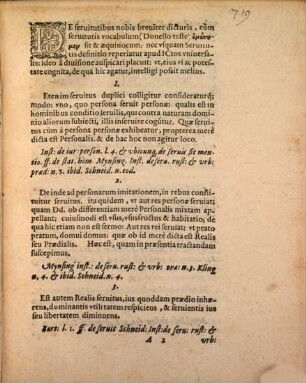 DE seruitutibus nobis breuiter dicturis, cùm
seruitutis vocabulum (Donello teste)
sit & æquinocum, necvsquam Seruitu-
tis definitio reperiatur apud ICtos vniuersa-
lis: ideò à diuisione auspicari placuit: vt, eius vi ac pote-
state cognita, de qua hic agatur, intelligi possit meliùs.
1.
Etenim seruitus duplici colligitur consideraturq́;
modo: vno, quo persona seruit personæ: qualis est in
hominibus conditio seruilis, qui contra naturam domi-
nio aliorum subiecti, illis inseruire cogũtur. Quæ serui-
tus cùm à persona personæ exhibeatur, propterea merè
dicta est Personalis. & de hac hoc non agitur loco.
Inst: de iur: person. l. 4. & vbicunq́ de seruis fit men-
tio. ff. de stat. hom. Mynsing. Inst. de seru. rust: & vrb:
præd: n. 3. ibid. Schneid. n. eod.
2.
De inde ad personarum imitationem, in rebus consti-
tuitur seruitus, ita quidem, vt aut res personæ seruiat;
quam Dd. ob differentiam merè Personalis mixtam ap-
pellant; cuiusmodi est vsus, vsusfructus & habitatio, de
qua hic etiam non est sermo: Aut res rei seruiat; vt prato
pratum, domui domus: quæ ob id merè dicta est Realis
seu Prædialis. Hæc est, quam in præsentia tractandam
suscepimus,
Mynsing inst: de seru. rust: & vrb: præ: n. 3. Kling
n. 4. & ibid. Schneid. n. 4.
3.
Est autem Realis seruitus, ius quoddam prædio inhæ-
rens, dominantis vtilitatem respiciens, & seruientis ius
seu libertatem diminuens.
Bart: l. 1. ff. de seruit Schneid: Inst: de seru: rust: &
A 2 vrb: